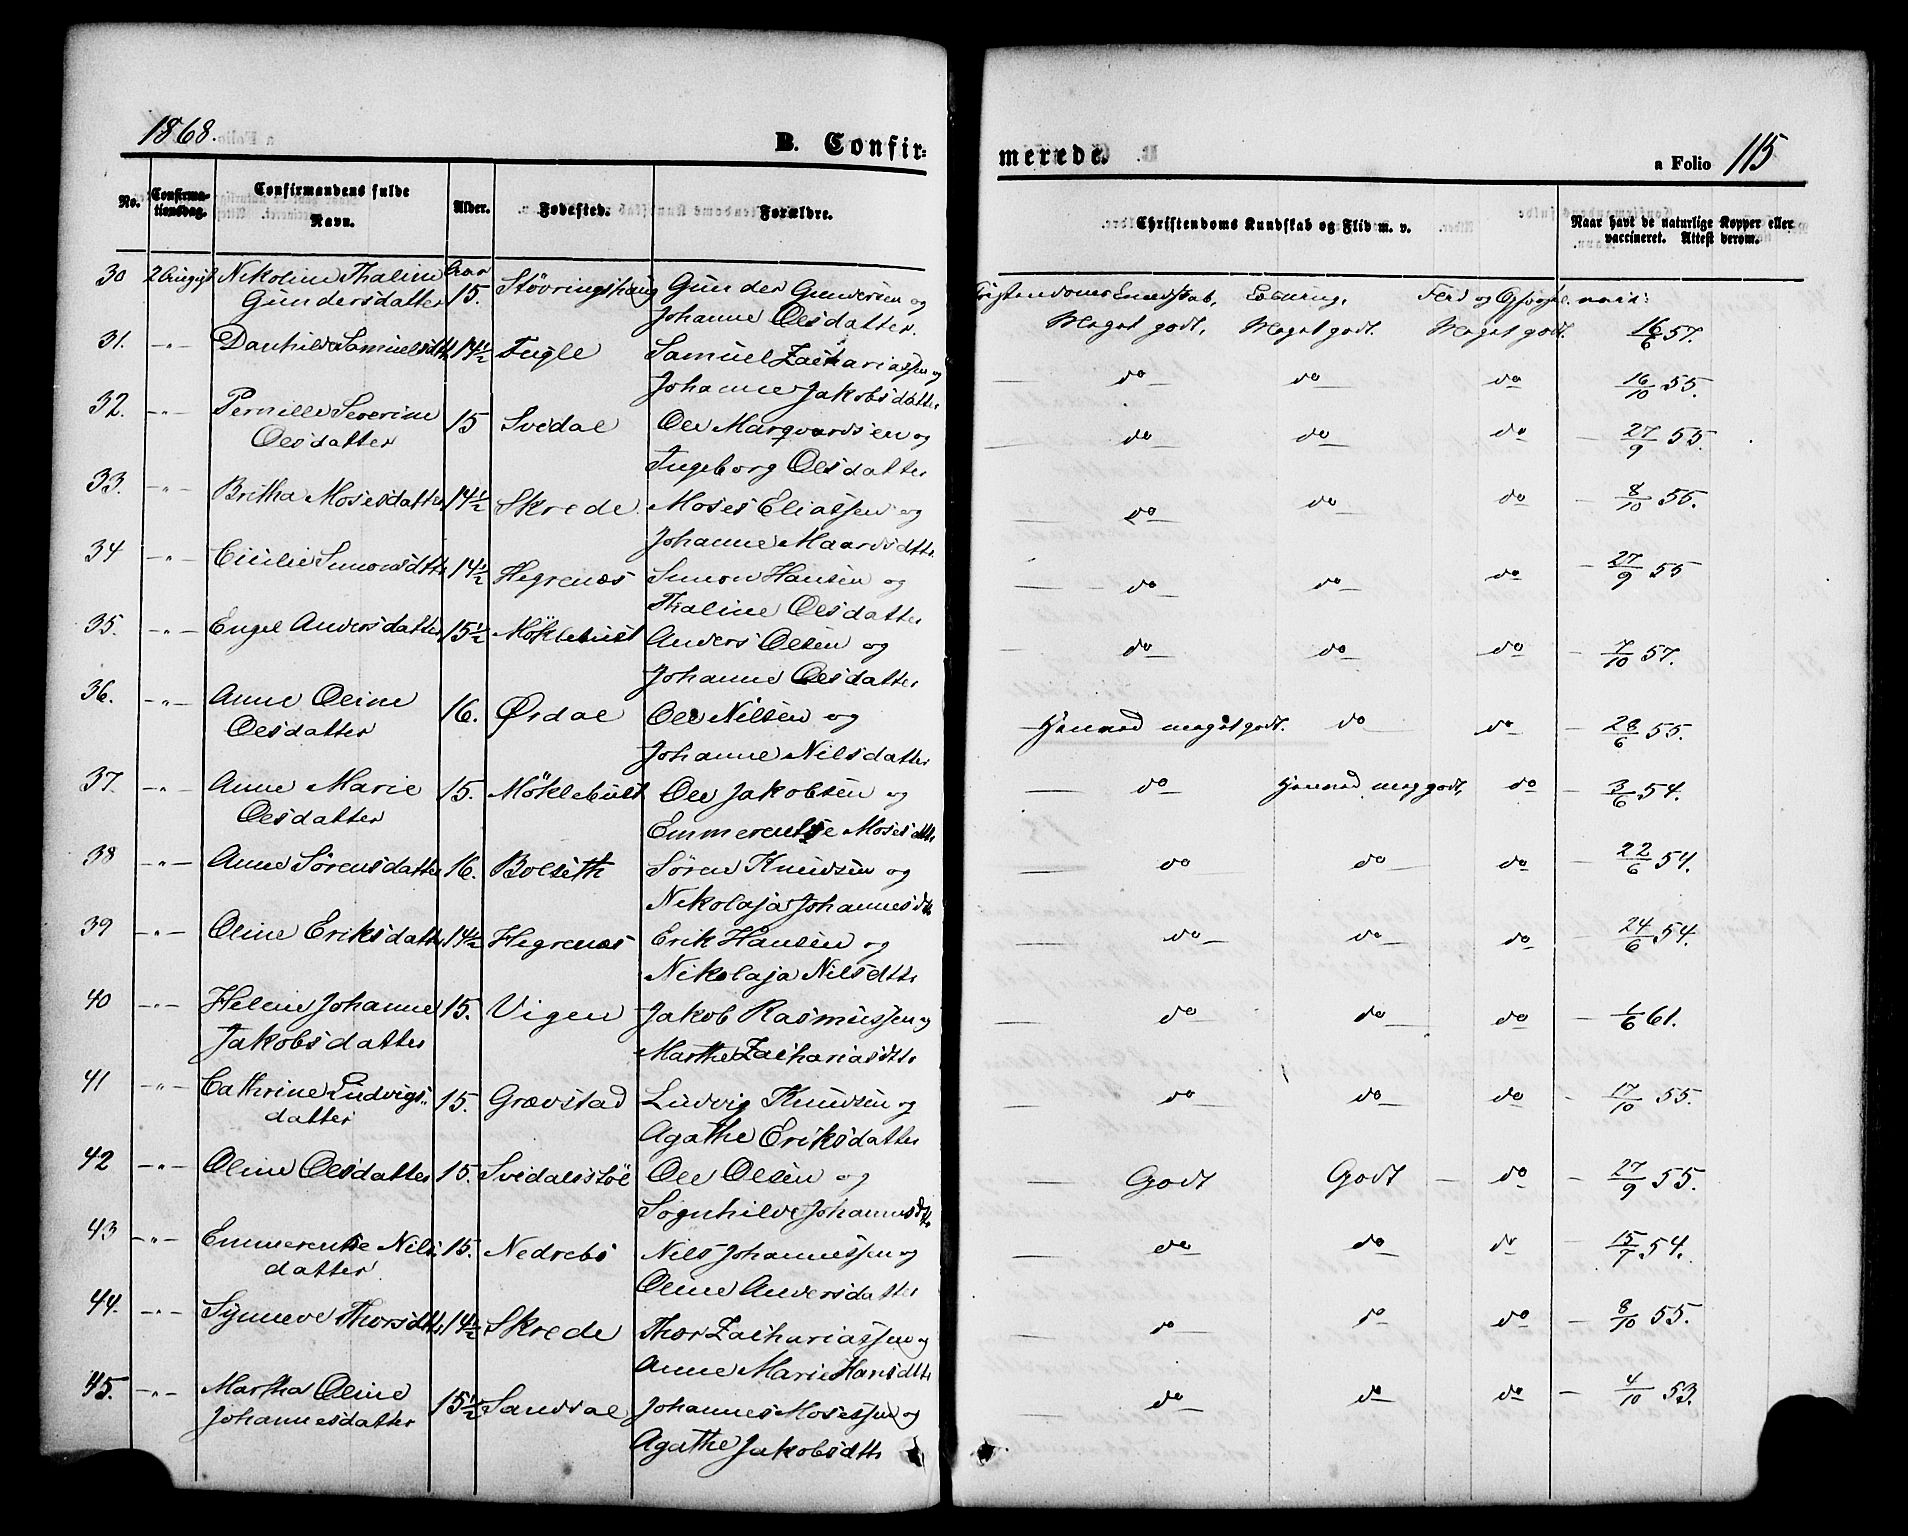 1868.
B. Confir=
merede.
a Folio 115
No.
Confirma-
tionsdag.
Confirmandens fulde
Navn.
Alder.
Fødested.
Forældre.
Christendoms Kundskab og Flid m. v.
Naar havt de naturlige Kopper eller
vaccineret. Attest derom.
30 2 August Nikoline Thaline Aar Gunder Gundersen og
Gundersdatter 15. Støvringshaug Johanne Olsdatter.
Meget godt, Meget godt. Meget godt. 16/6 57.
31. -"- Danhilda Samuelsdtt 14½ Fugle Samuel Zachariassen og
Johanne Jakobsdatter do do do 16/10 55.
32. -"- Pernille Severine 15 Svedal Ole Marqvardsen og
Olsdatter Ingeborg Olsdatter do do do 27/9 55.
33. -"- Britha Mosesdatter 14½ Skrede Moses Eliassen og
Johanne Maardsdtt. do do do 8/10 55.
34 -"- Cicilie Simonsdtt 14½ Hegrenæs Simon Hansen og
Thaline Olsdatter do do do 27/9 55
35. -"- Engel Andersdatter 15½ Möklebust Anders Olsen og
Johanne Olsdatter do do do 7/10 57.
36. -"- Anne Oline 16. Ørdal Ole Nilsen og
Olsdatter Johanne Nilsdatter meget godt. do do 28/6 55.
37. -"- Anne Marie 15. Möklebust Ole Jakobsen og
Olsdatter Emmerentse Mosesdtt do meg godt, do 3/6 54.
38 -"- Anne Sørensdatter 16. Bolseth Søren Knudsen og
Nikolaja Johannesdtt do do do 22/6 54.
39 -"- Oline Eriksdatter 14½ Hegrenæs Erik Hansen og
Nikolaja Nilsdtt. do do do 24/6 54.
40 -"- Heline Johanne 15. Vigen Jakob Rasmussen og
Jakobsdatter Marthe Zachariasdtt. do do do 1/6 61.
41 -"- Cathrine Ludvigs- 15. Grævstad Ludvig Knudsen og
datter Agathe Eriksdatter do do do 17/10 55.
42 -"- Oline Olsdatter 15. Svedalsstöl Ole Olsen og
Sognhilde Johannesdtt Godt Godt do 27/9 55.
43 -"- Emmerentse Nils- 15. Nedrebö Nils Johannessen og
datter Oline Andersdatter do do do 15/7 54.
44. -"- Synneve Thorsdtt 14½ Skrede Thor Zachariassen og
Anne Marie Hansdtt do do do 8/10 55.
45. -"- Martha Oline 15½ Sandal Johannes Mosessen og
Johannesdatter Agathe Jakobsdtt. do do do 4/10 53.